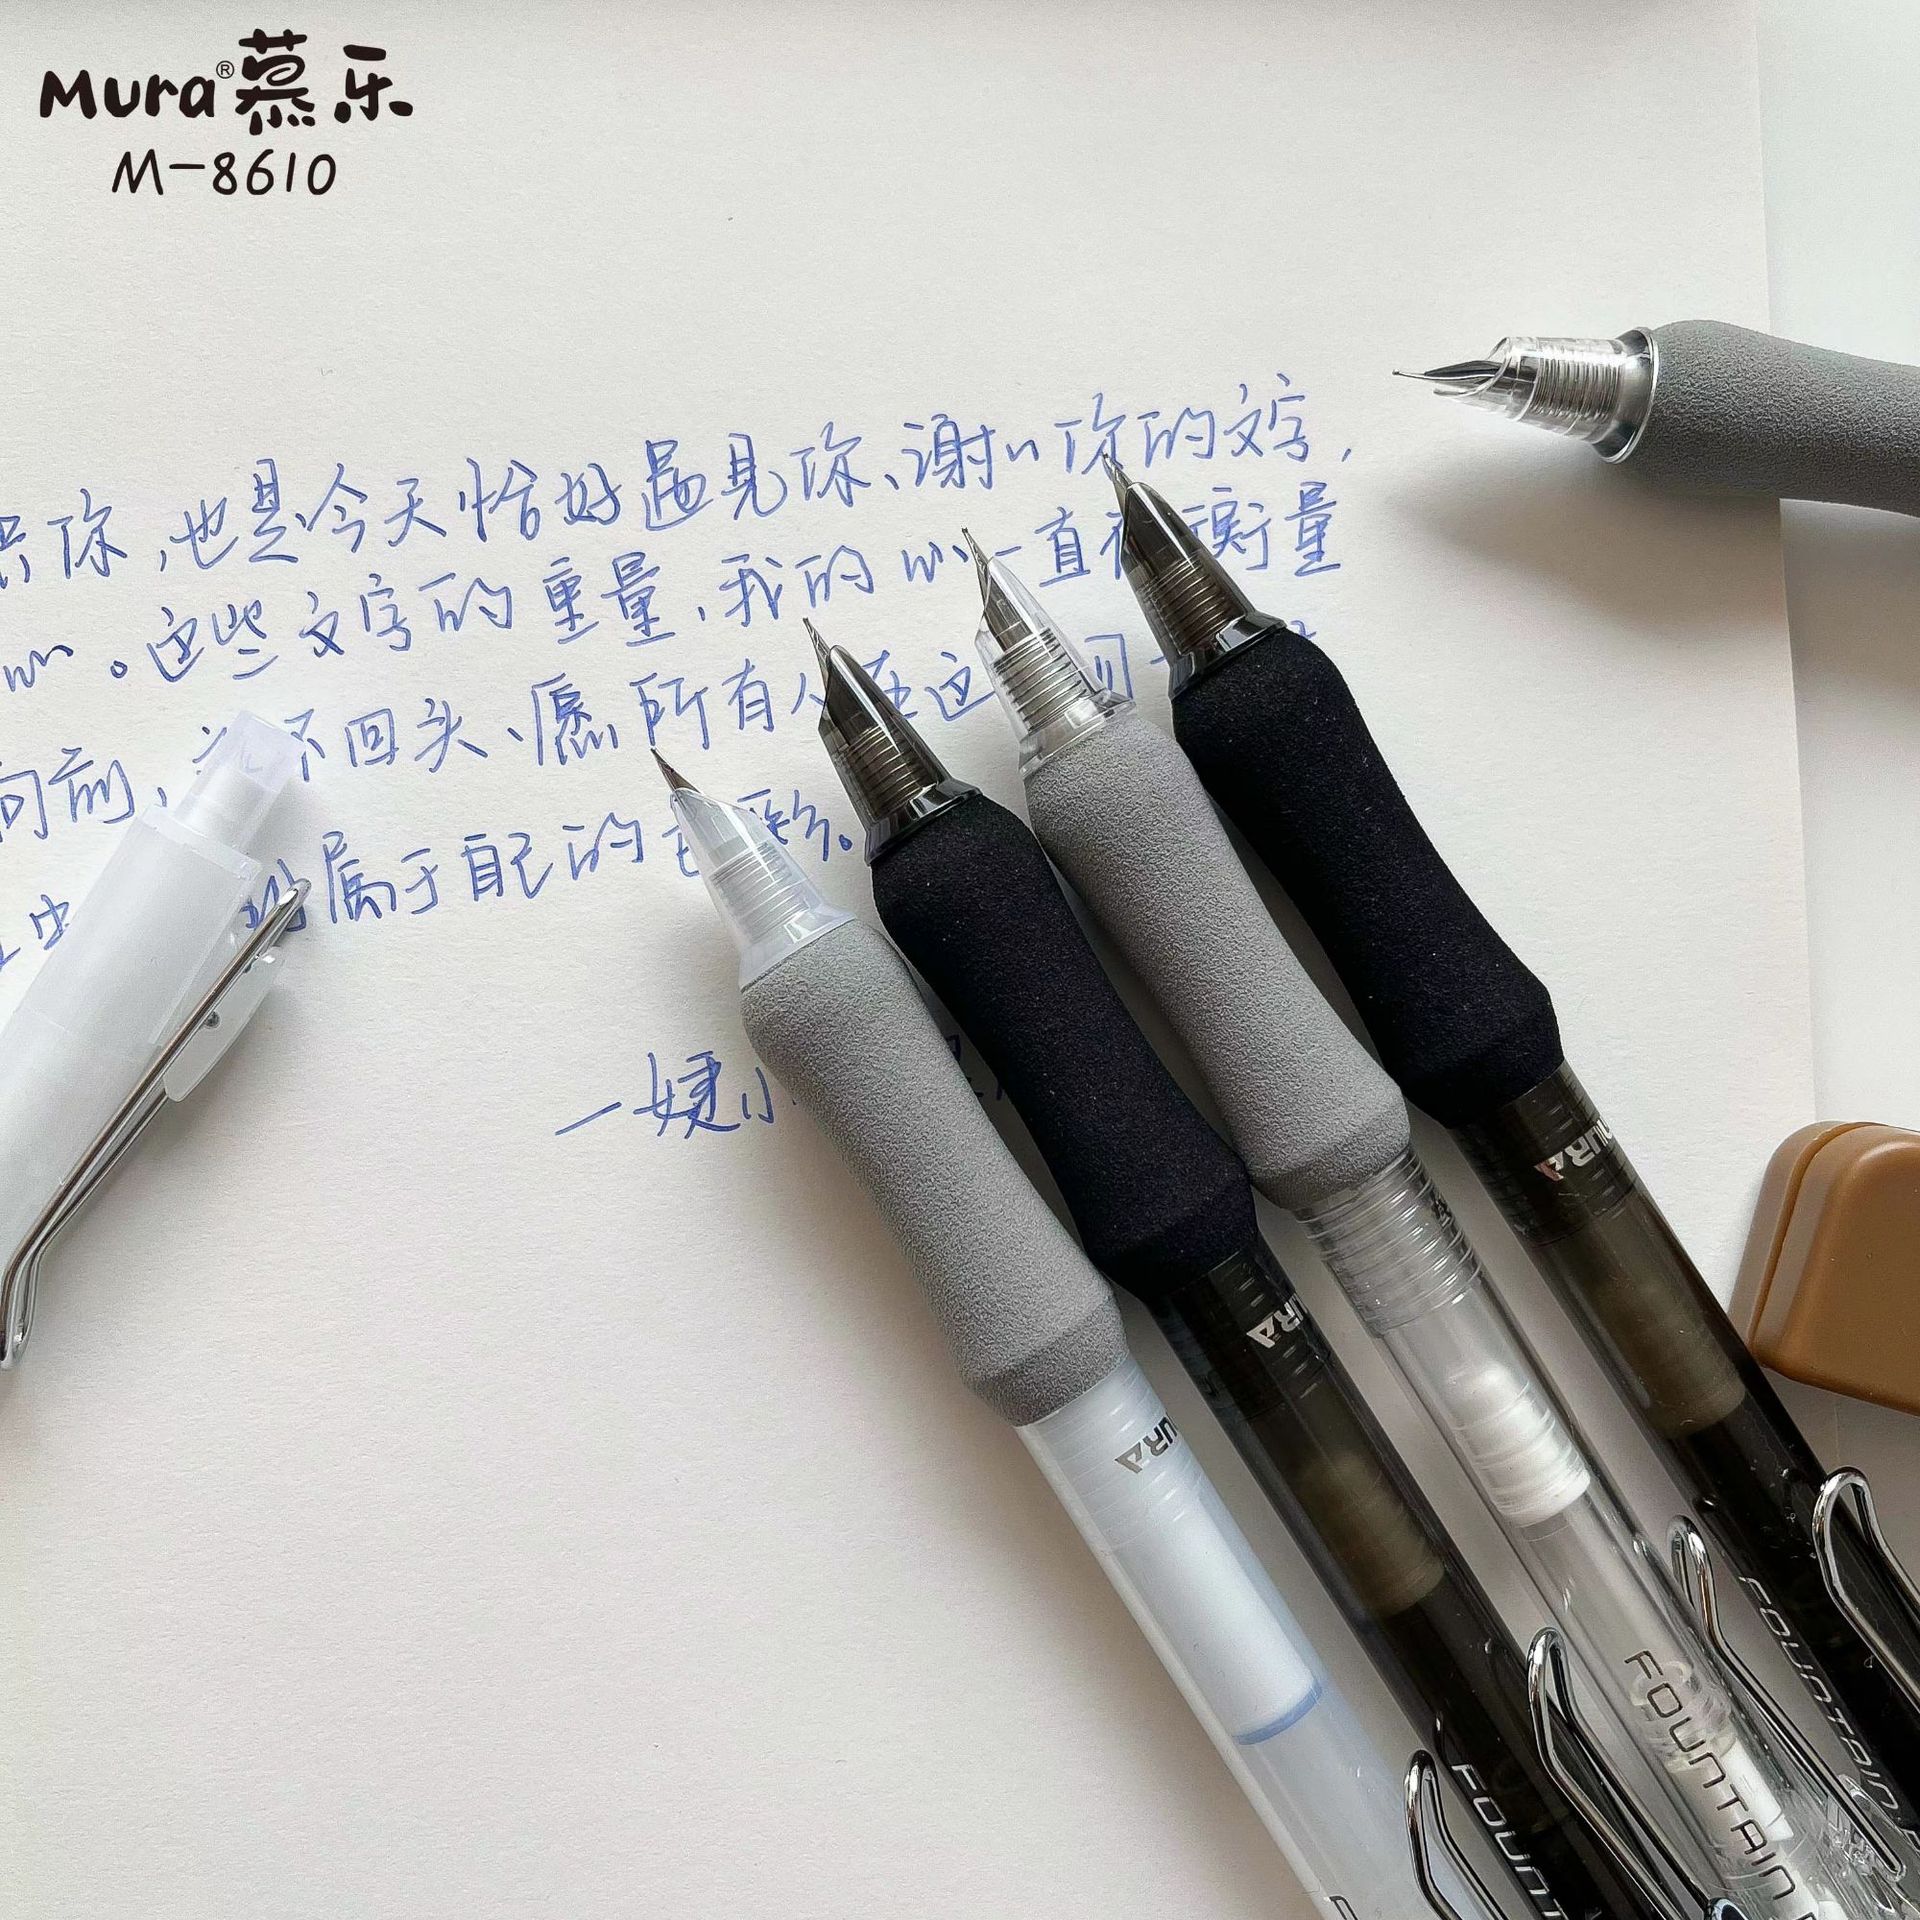 Mura®慕乐
M-8610
你,也是今天恰好遇见你、谢心你的文字,
心。这些文字的重量,我的心一直被 衡量
向前, 不回头、愿所有人在这
属于自己的色彩。
一婕小
MURA
MURA
MURA
FOUNTAIN
FOUNTAIN
FOUNT